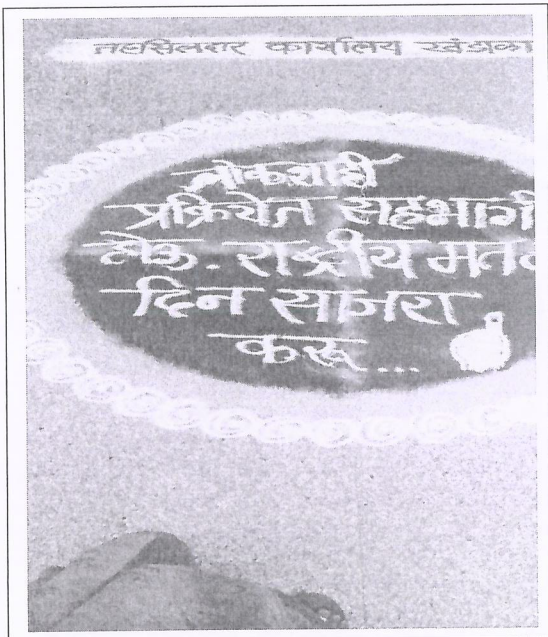 तहसिलदार कार्यालय खंडाळा
लोकशाही
प्रक्रियेत सहभागी
होऊ. राष्ट्रीय मतद
दिन साजरा
करू...